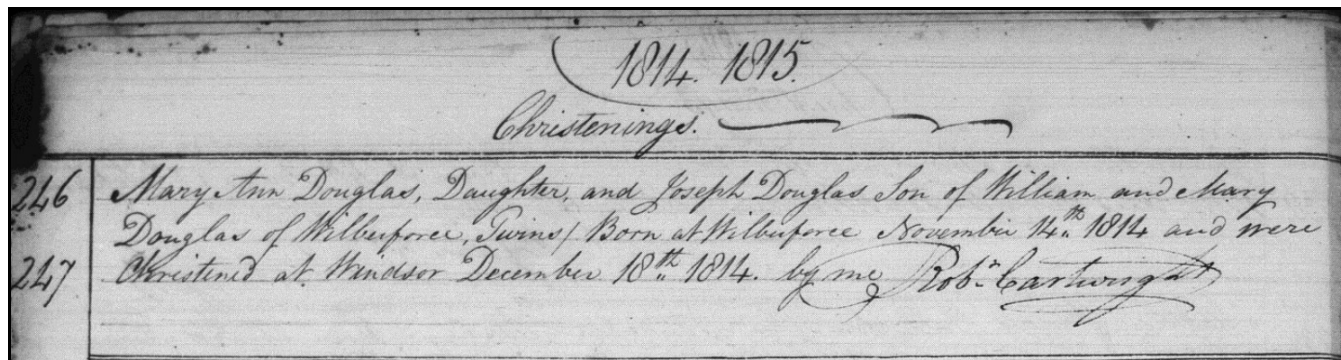 1814. 1815.
Christenings.
246 Mary Ann Douglas, Daughter, and Joseph Douglas Son of William and Mary
Douglas of Wilberforce, Twins / Born at Wilberforce November 14th. 1814 and were
247 Christened at Windsor December 18th. 1814. by me Robt. Cartwright